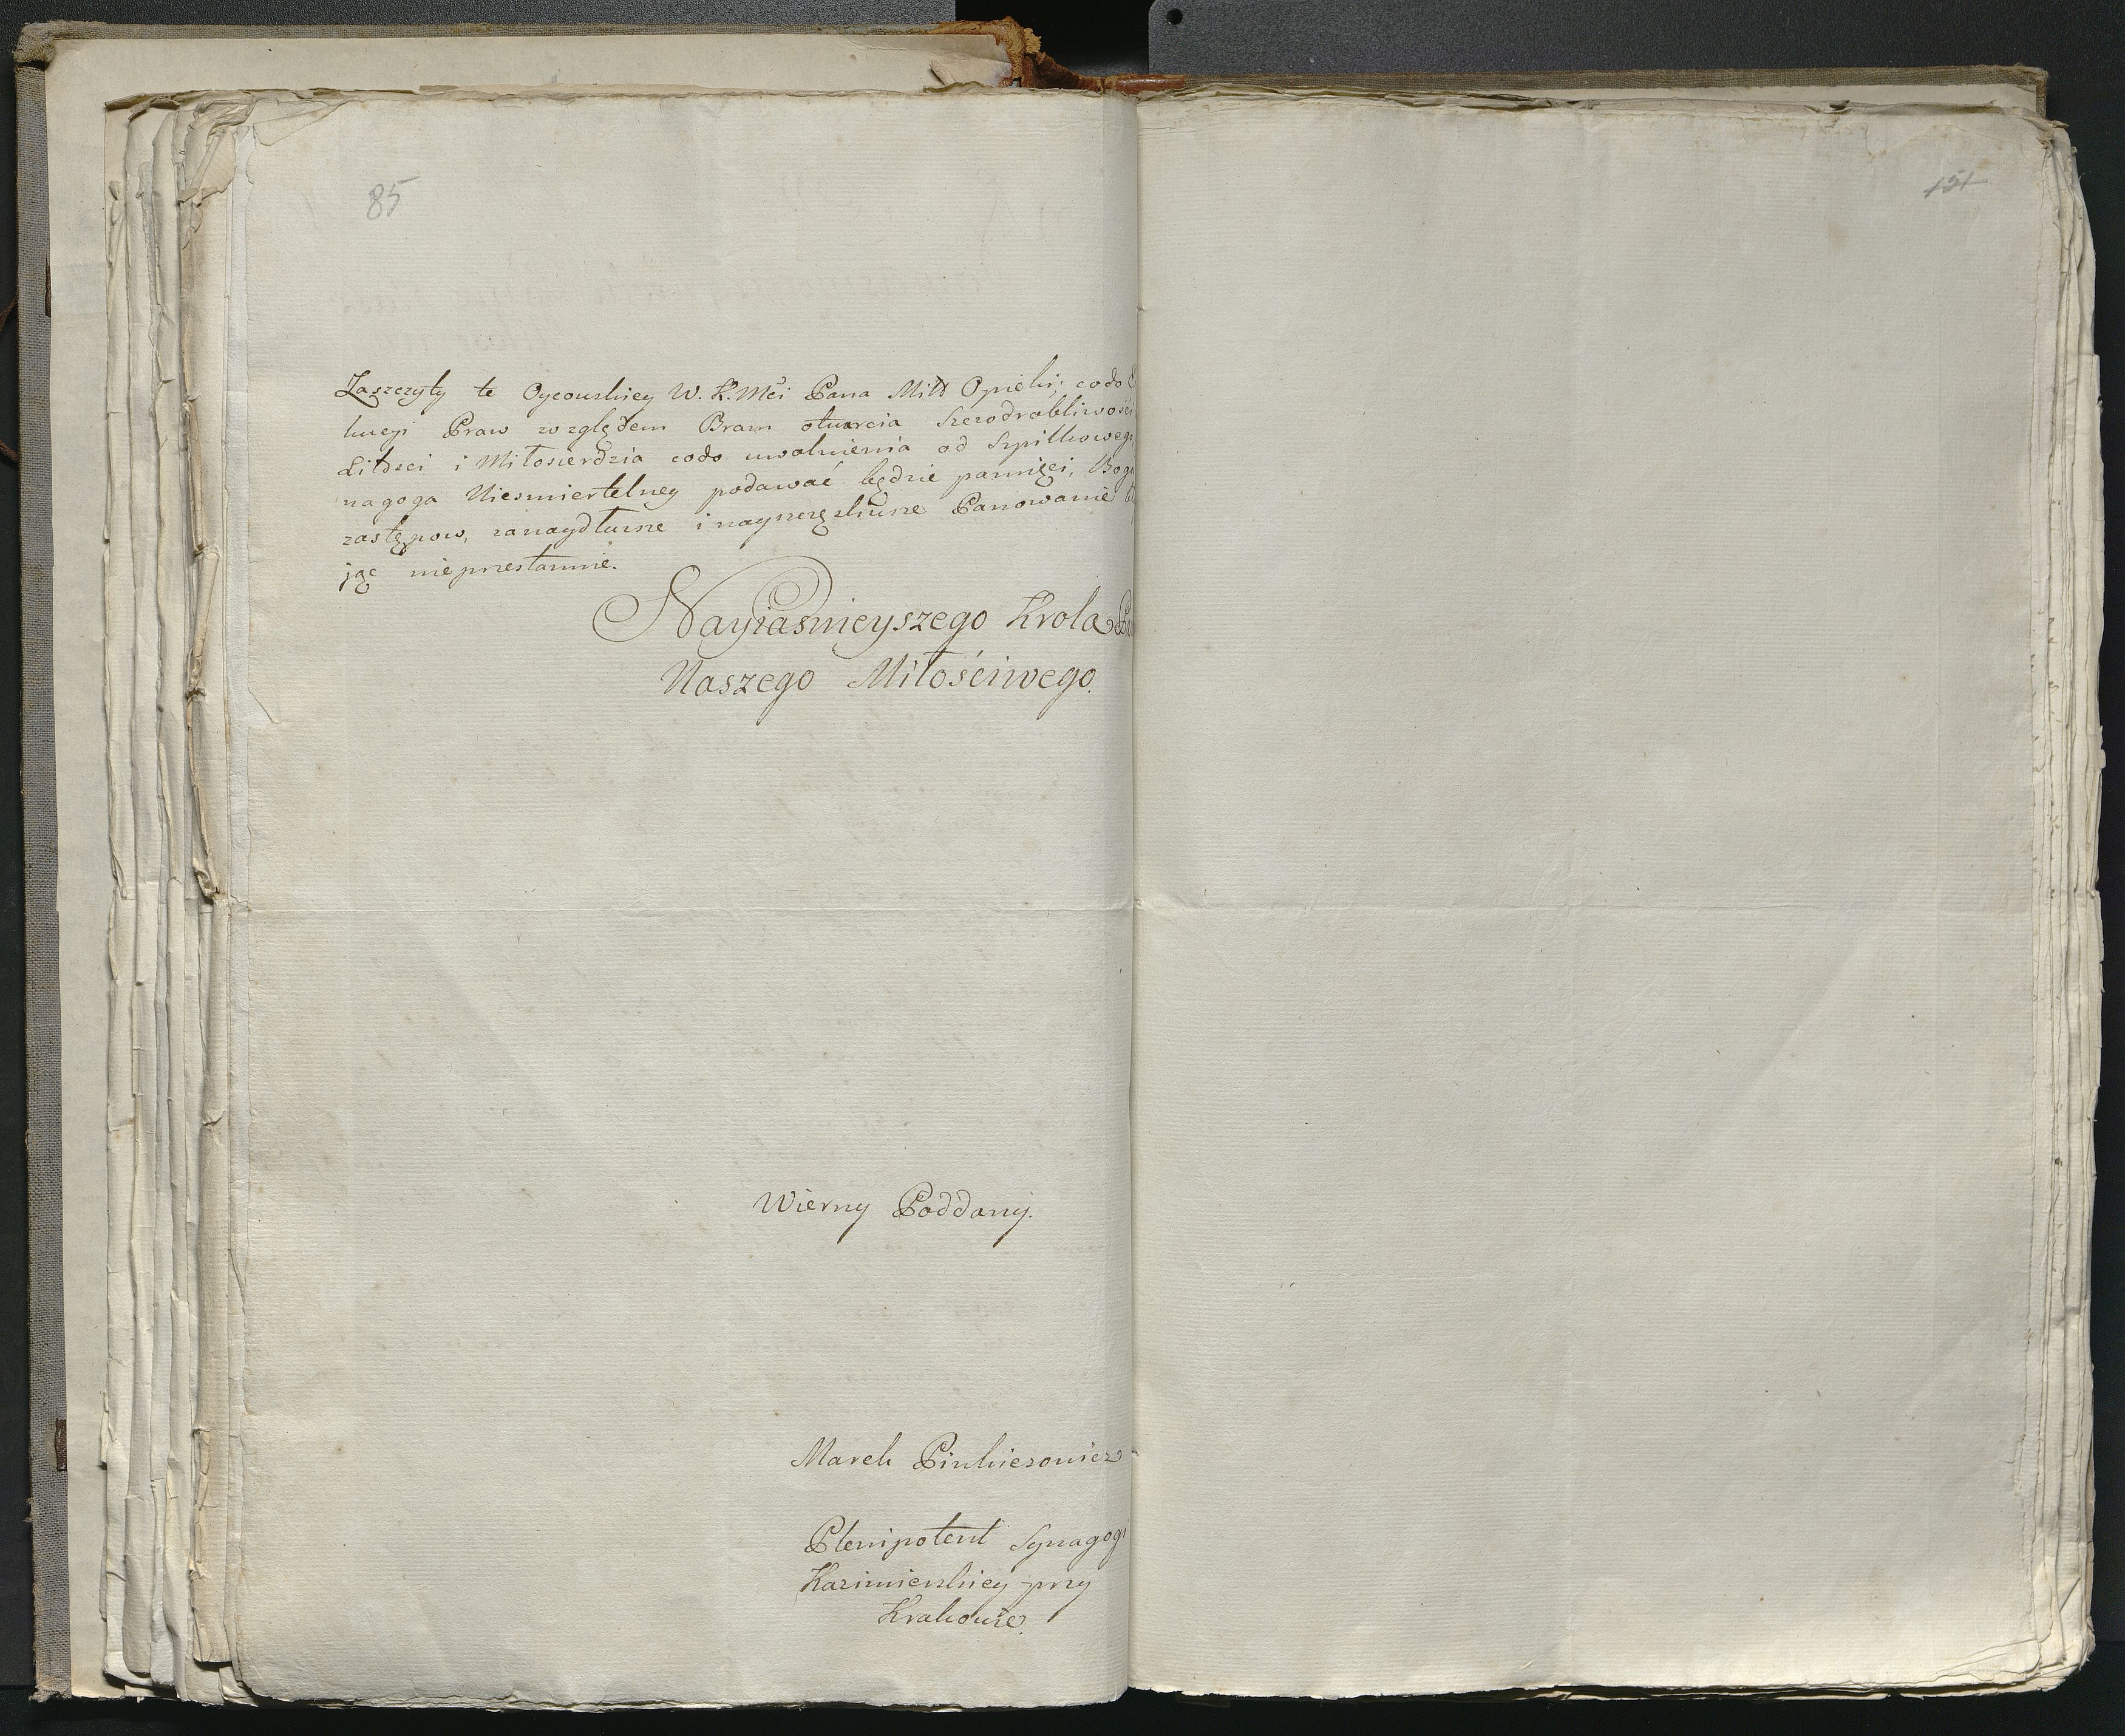 85
151
Zaszczyty te Oycowskiey W. K. Mći Pana Miłł Opieki; codo
kucyi Praw względem Bram otwarcia Szczodrobliwości
Litości i Miłosierdzia codo uwolnienia od Szpilkowego,
nagoga Niesmiertelney podawać będzie pamięci, Boga
zastępow, zanaydłuzsze i nayszczęsliwsze Panowanie
jąc nieprzestannie.
Nayiasnieyszego Krola
Naszego Miłościwego.
Wierny Poddany.
Marek Pinkiesowicz
Plenipotent Synagogi
Kazimierskiey przy
Krakowie.